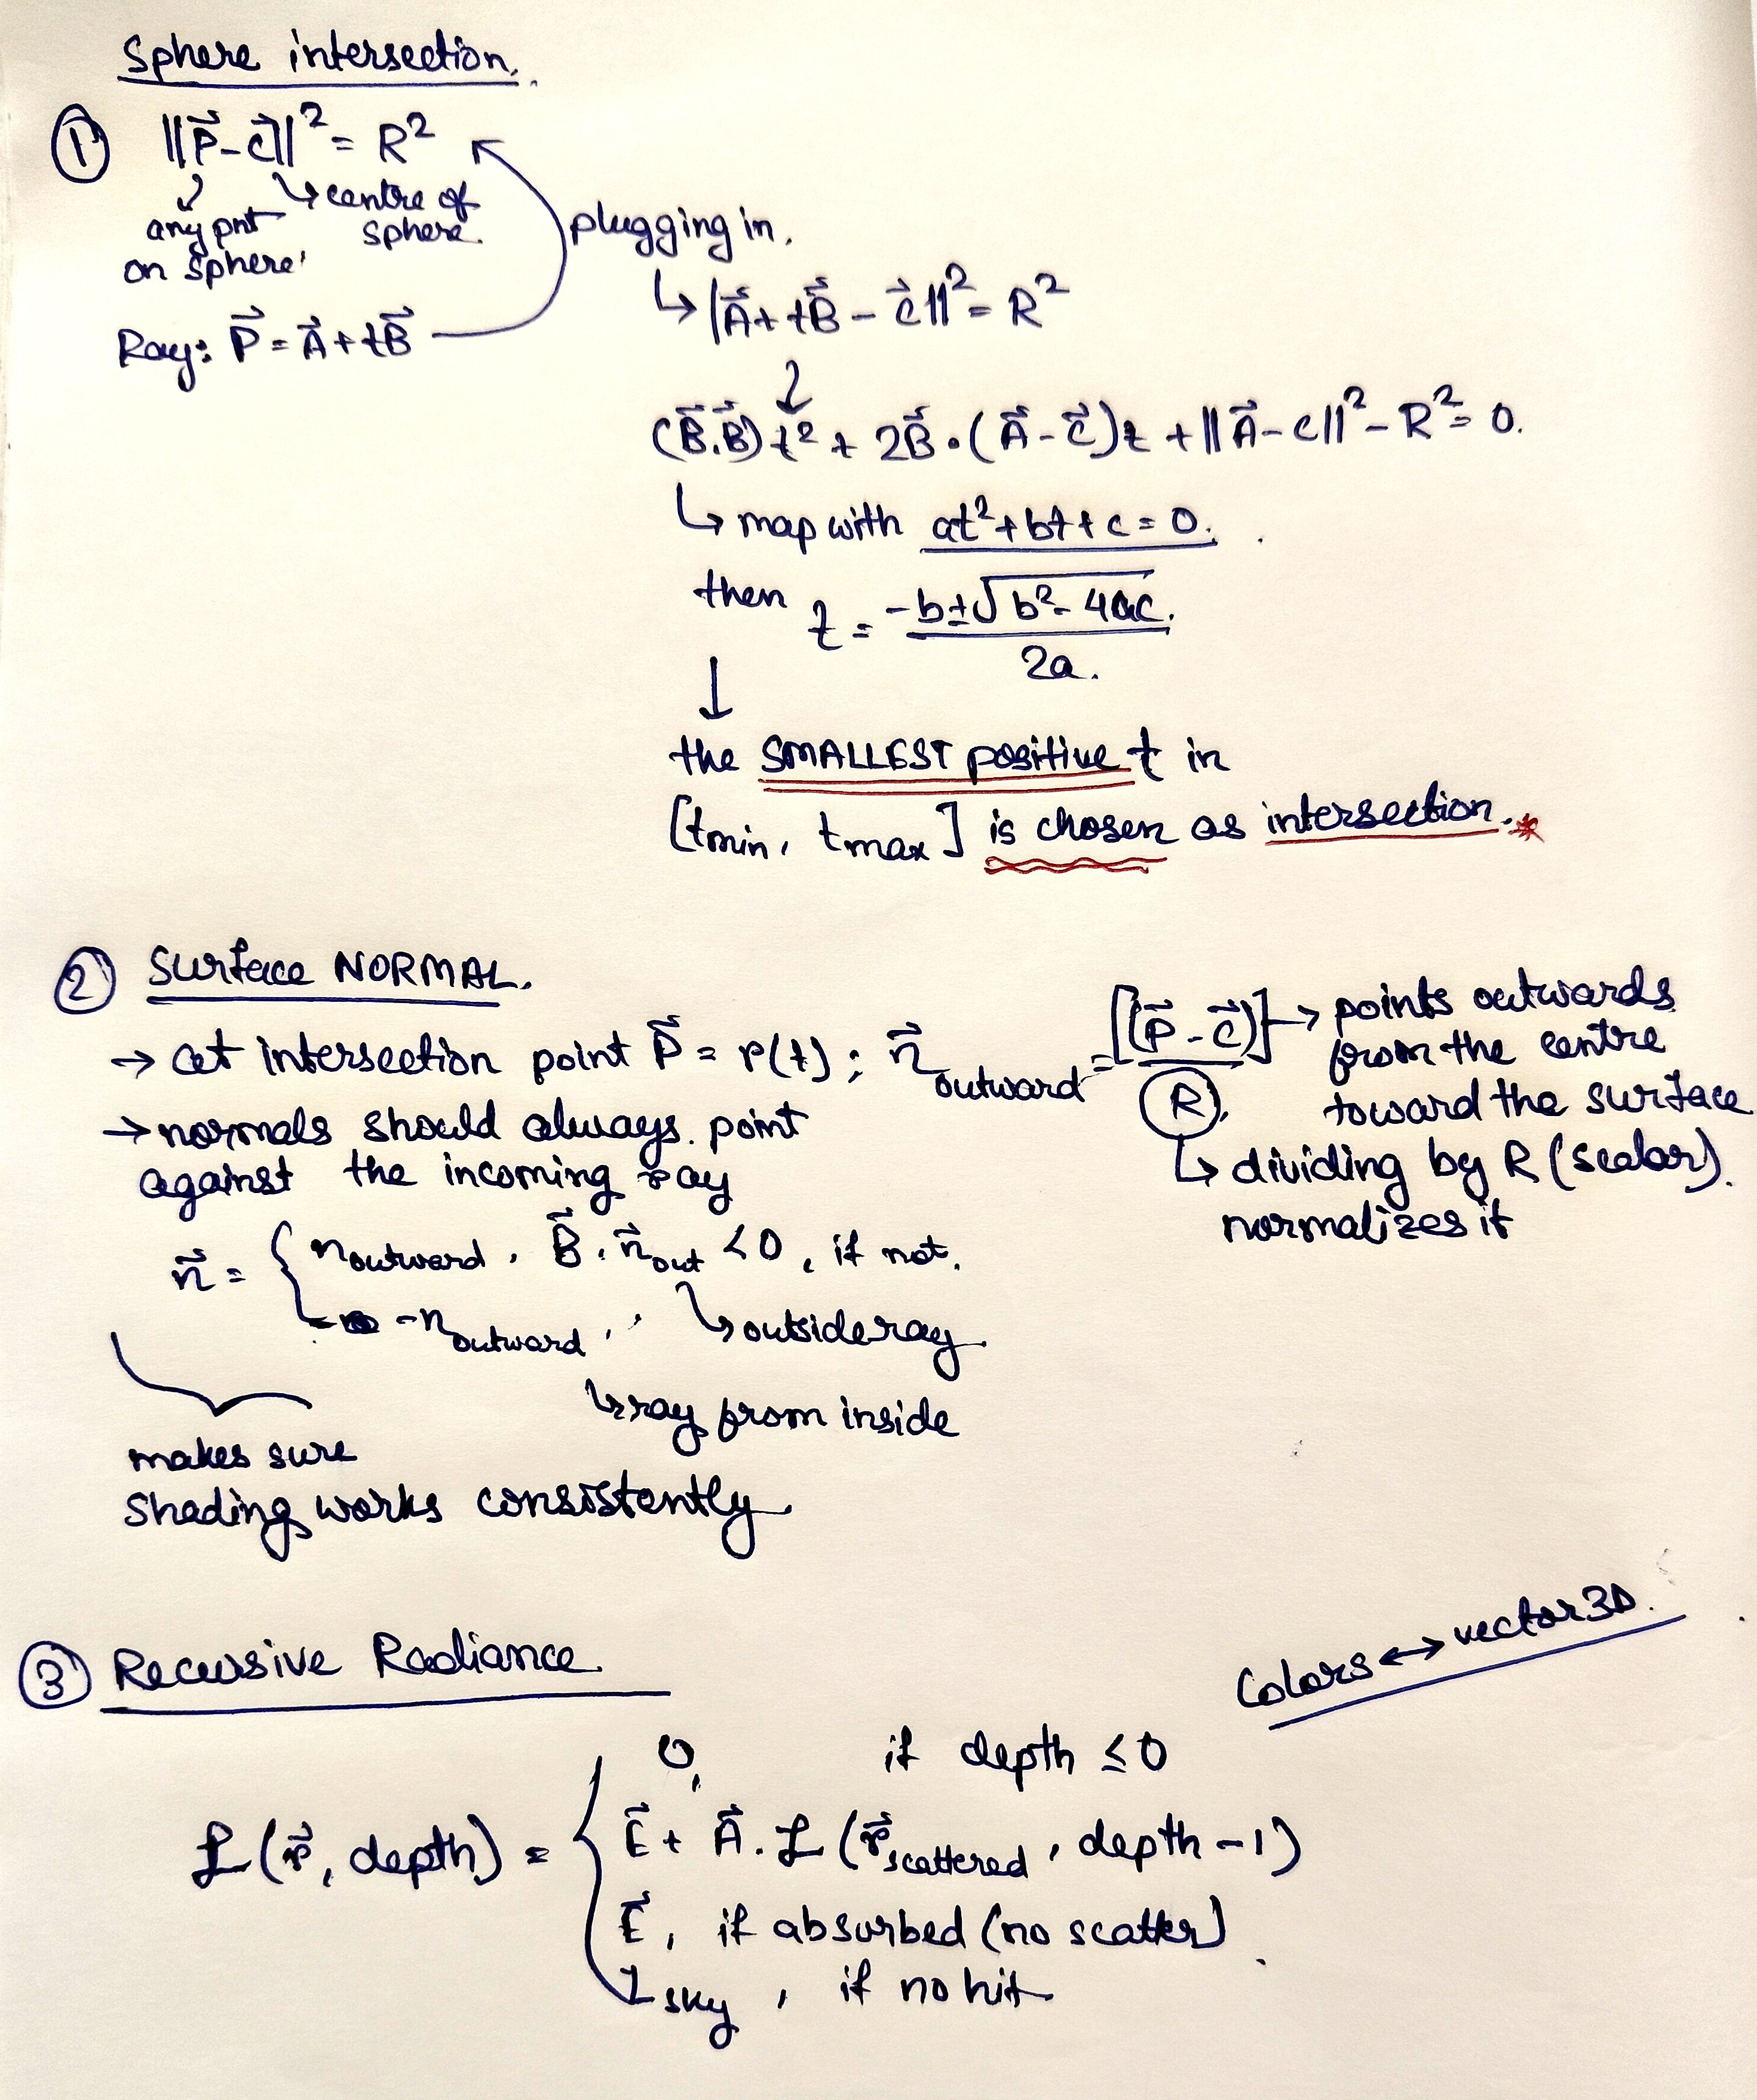 Sphere intersection.
① ||P⃗-C⃗||² = R²
any pnt on sphere
centre of sphere.
Ray: P⃗ = A⃗ + tB⃗
plugging in.
↳ |A⃗ + tB⃗ - C⃗||² = R²
(B⃗.B⃗)t² + 2B⃗·(A⃗-C⃗)t + ||A⃗-C||² - R² = 0.
↳ map with at²+bt+c = 0.
then t = (-b±√(b²-4ac))/2a.
↓
the SMALLEST positive t in
[tmin, tmax] is chosen as intersection.*
② Surface NORMAL.
→ at intersection point P⃗ = r(t); n⃗outward = [(P⃗-C⃗)]/R
→ points outwards
from the centre
toward the surface
↳ dividing by R (scalar).
normalizes it
→ normals should always point
against the incoming ray
n⃗ = { noutward, B⃗.n⃗out <0, if not.
-noutward,
↳ outside ray
↳ ray from inside
makes sure
shading works consistently
③ Recursive Radiance
Colors ↔ vector3D.
0, if depth ≤ 0
L(r⃗, depth) = { E⃗ + A⃗.L(r⃗scattered, depth-1)
E⃗, if absurbed (no scatter)
Lsky, if no hit